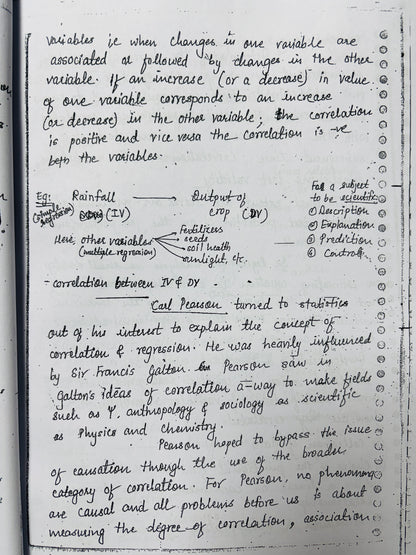 variables ie when changes in one variable are
associated or followed by changes in the other
variable. If an increase (or a decrease) in value
of one variable corresponds to an increase
(or decrease) in the other variable; the correlation
is positive and vice versa the correlation is -ve
betn the variables.
For a subject
to be scientific
Eg: Rainfall → Output of
(simple regression) (IV) crop (DV)
① Description
② Explanation
③ Prediction
④ Control
Here, other variables
(multiple regression)
Fertilizers
seeds
soil health
sunlight, etc.
- correlation between IV & DV.
Carl Pearson turned to statistics
out of his interest to explain the concept of
correlation & regression. He was heavily influenced
by Sir Francis Galton. Pearson saw in
Galton's ideas of correlation a-way to make fields
such as Ψ, anthropology & sociology as scientific
as Physics and Chemistry.
Pearson hoped to bypass the issue
of causation though the use of the broader
category of correlation. For Pearson, no phenomena
are causal and all problems before us is about
measuring the degree of correlation, association